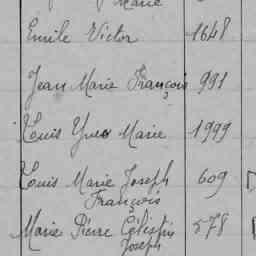 Marie
Emile Victor 1648
Jean Marie François 991
Louis Yves Marie 1999
Louis Marie Joseph 609
François
Marie Pierre Célestin 578
Joseph